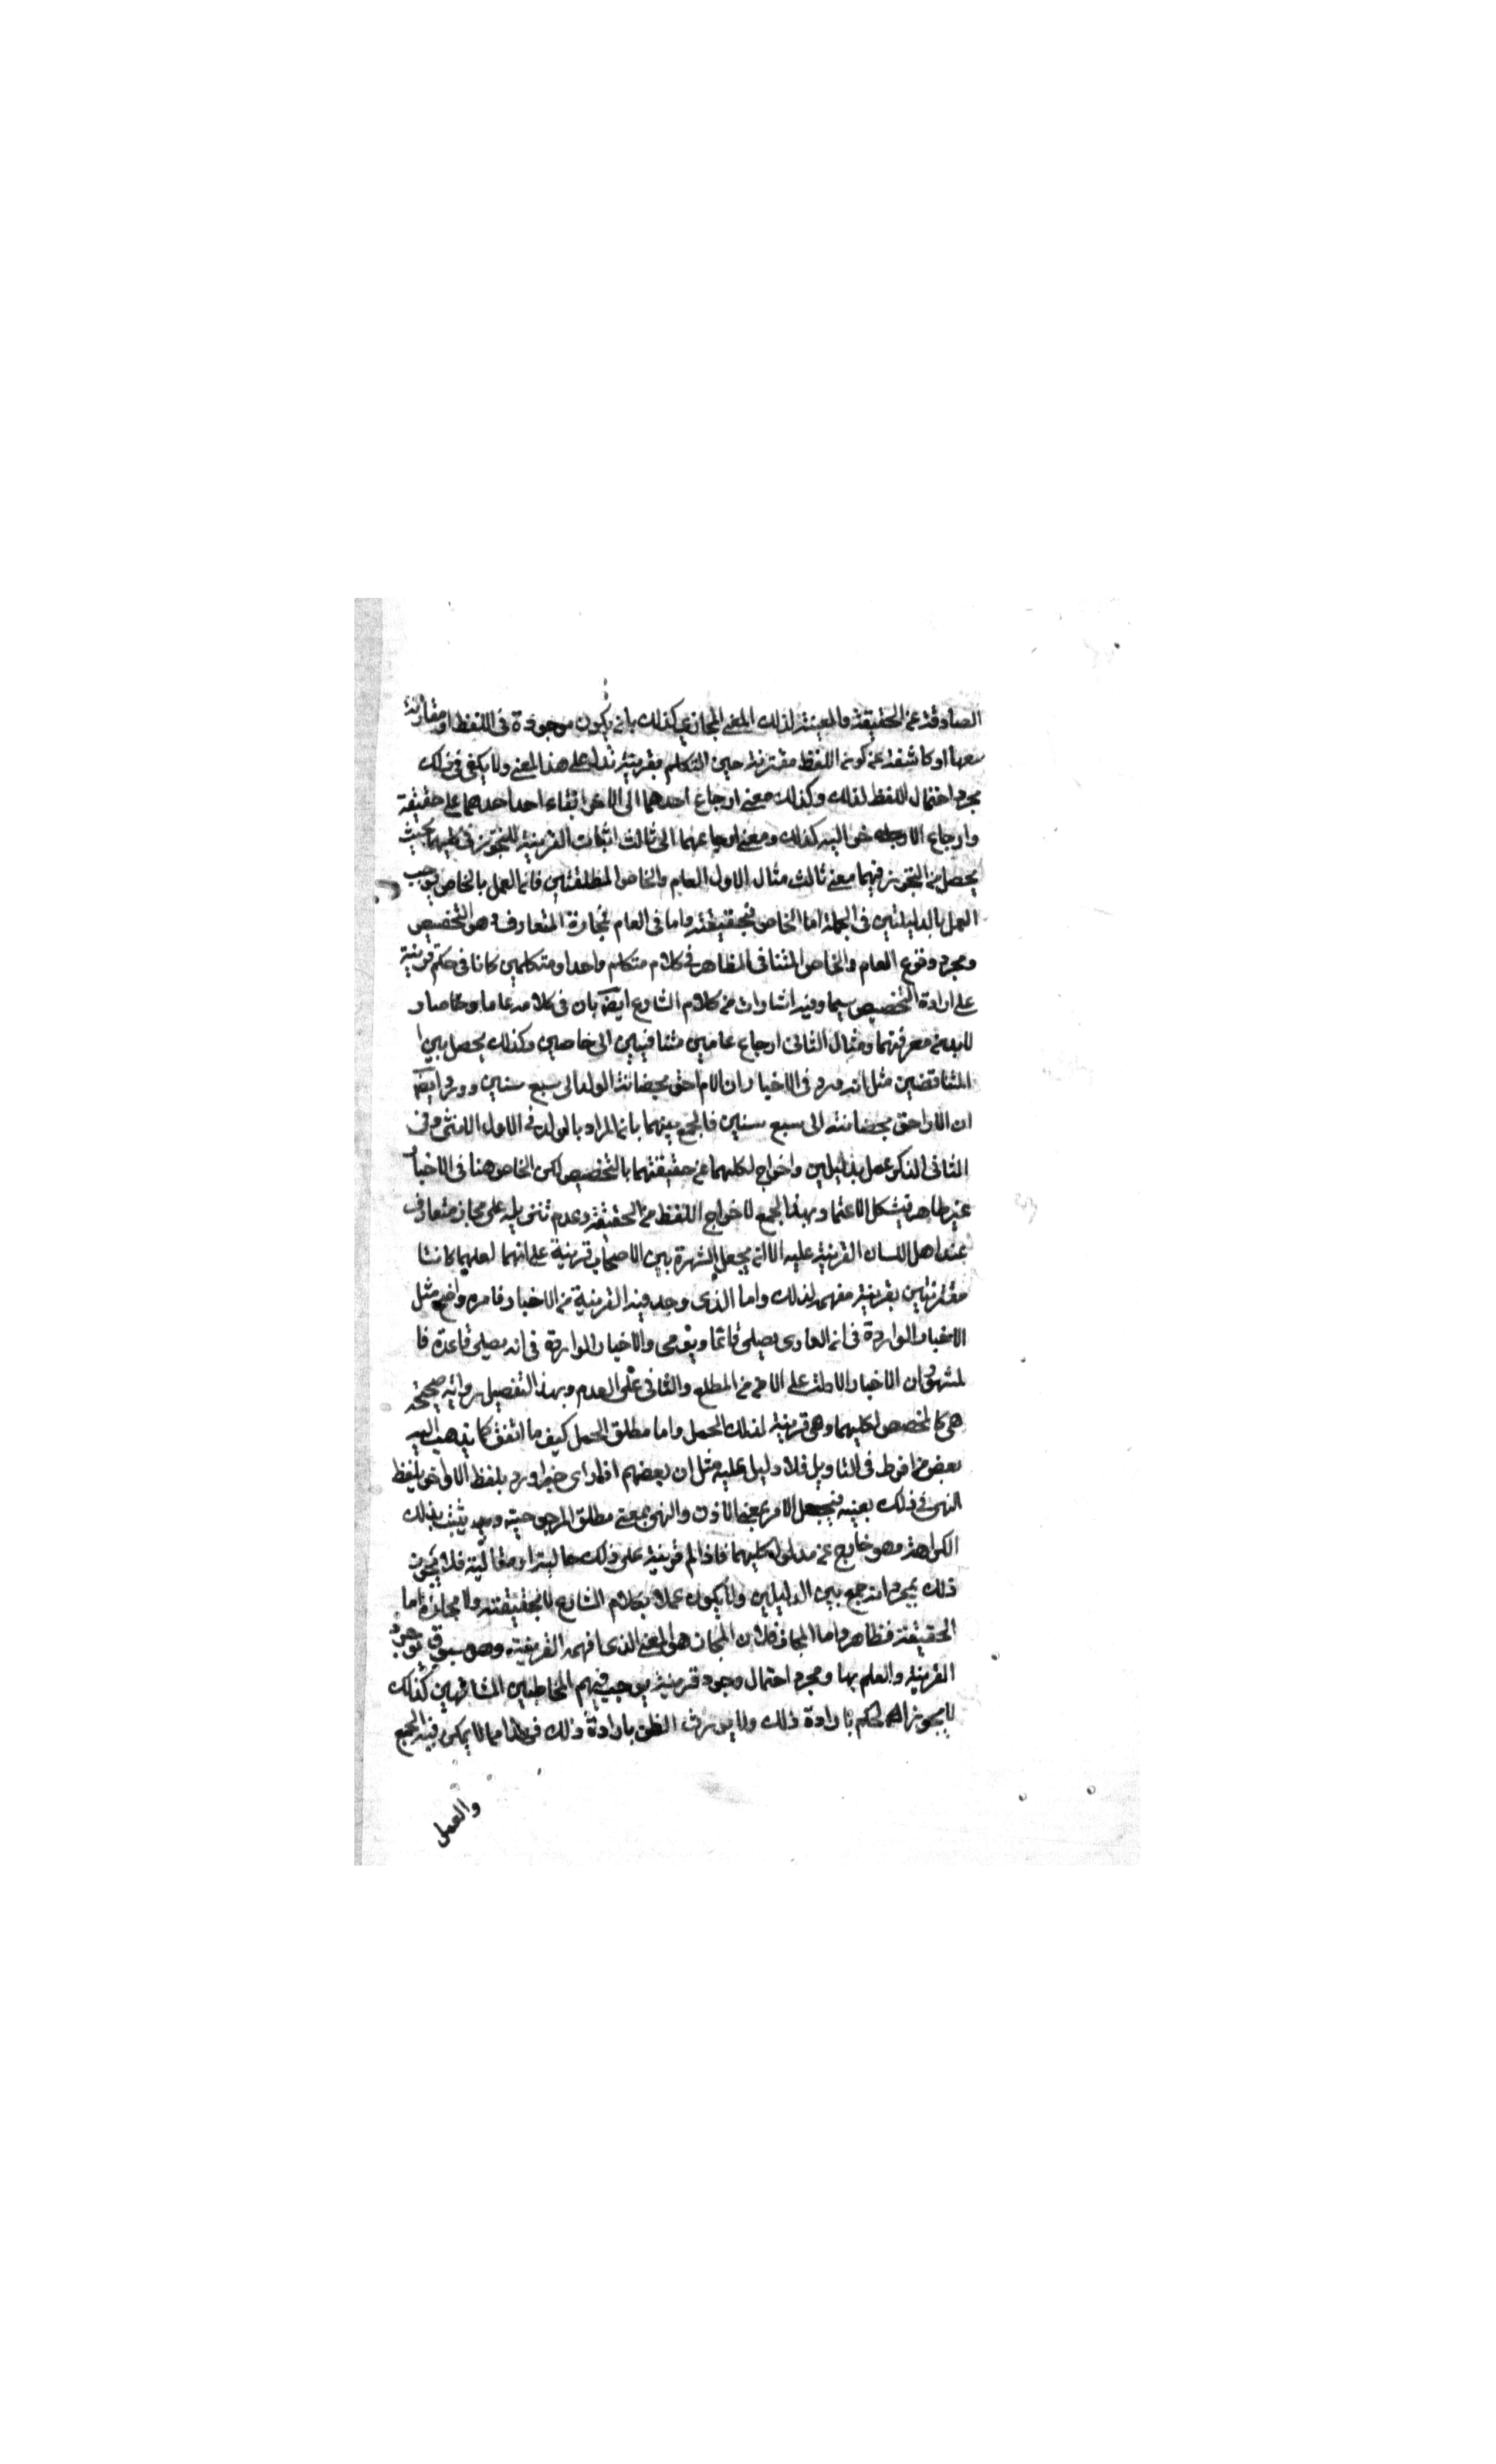 الصادقة عن الحقيقة والمعينة لذلك المعنى المجازى كذلك بان يكون موجودة فى اللفظ او مقارنة
معها او كاشفة عن كون اللفظ مقترنة حين التكلم بقرينة تدل على هذا المعنى ولا يكفى فى ذلك
مجرد احتمال اللفظ لذلك وكذلك معنى ارجاع احدهما الى الاخر ابقاء احد احدهما على حقيقة
وارجاع الاخر اليه كذلك ومعنى ارجاعهما الى ثالث اثبات القرينة للتجوز فى كليهما بحيث
يحصل من التجوز فيهما معنى ثالث مثال الاول العام والخاص المطلقتين فان العمل بالخاص يوجب
العمل بالدليلين فى الجملة اما الخاص فبحقيقته واما فى العام فبمجازه المتعارف وهو التخصيص
ومجرد وقوع العام والخاص المتنافى الظاهر فى كلام متكلم واحد او متكلمين كانا فى حكم قرينة
على ارادة التخصيص سيما وفيه اشارات من كلام الشارع ايضا بان فى كلامه عاما وخاصا و
لابد من معرفتهما ومثال الثانى ارجاع عامين متنافيين الى خاصين وكذلك يحصل بين ا
المتناقضين مثل انه ورد فى الاخبار ان الام احق بحضانة الولد الى سبع سنين وورد ايضا
ان الاب احق بحضانته الى سبع سنين فالجمع بينهما بان المراد بالولد فى الاول الانثى وفى
الثانى الذكر عمل بدليلين واخراج لكليهما عن حقيقتهما بالتخصيص لكن الخاص هنا فى الاخبار
غير ظاهر فيشكل الاعتماد بهذا الجمع لاخراج اللفظ من الحقيقة وعدم تنزيله على مجاز متعارف
عند اهل اللسان القرينة عليه الا ان يجعل الشهرة بين الاصحاب قرينة على انهما لعلهما كانتا
مقترنتين بقرينة مفهمة لذلك واما الذى وجد فيه القرينة من الاخبار فامره واضح مثل
الاخبار الواردة فى ان العارى يصلى قائما ويومى والاخبار الواردة فى انه يصلى قاعدة فا
لمشهور ان الاخبار الاولة على الامن من المطلع والثانى على العدم وبهذا التفصيل رواية صحيحة
هى كالمخصص لكليهما وهى قرينة لذلك الحمل واما مطلق الحمل كيف ما اتفق كما يذهب اليه
بعض من افرط فى التاويل فلا دليل عليه مثل ان بعضهم اذا راى خبرا ورد بلفظ الامر واخر بلفظ
النهى فى ذلك بعينه فيجعل الامر بمعنى الاذن والنهى بمعنى مطلق المرجوحية ويثبت بذلك
الكراهة وهو خارج عن مدلول كليهما فاذا لم قرينة على ذلك حالية او مقالية فلا يجوز
ذلك بمجرد انه جمع بين الدليلين ولا يكون عملا بكلام الشارع لا بحقيقته ولا مجازه اما
الحقيقة فظاهر واما المجاز فلان المجاز هو المعنى الذى افهمه القرينة وهو مسبوق بوجود
القرينة والعلم بها ومجرد احتمال وجود قرينة يوجب فهم المخاطبين المشافهين كذلك
لا يجوز الحكم بارادة ذلك ولا يورث الظن بارادة ذلك فهذا مما لا يمكن فيه الجمع
والعمل